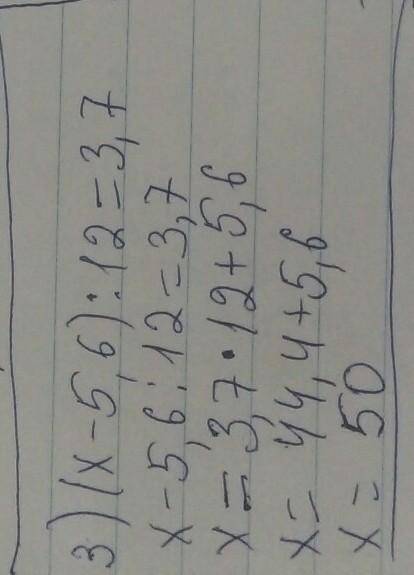 3) (x-5,6):12=3,7
x-5,6:12=3,7
x=3,7·12+5,6
x=44,4+5,6
x=50